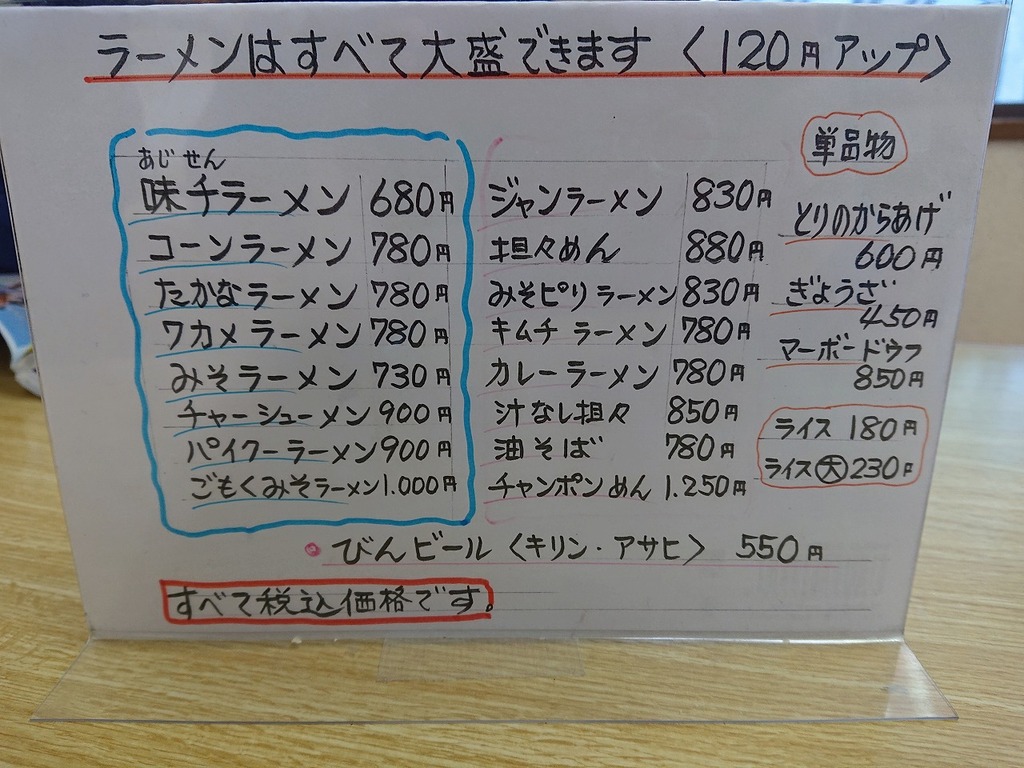 ラーメンはすべて大盛できます〈120円アップ〉
あじせん
味千ラーメン 680円
コーンラーメン 780円
たかなラーメン 780円
ワカメラーメン 780円
みそラーメン 730円
チャーシューメン 900円
パイクーラーメン 900円
ごもくみそラーメン 1.000円
ジャンラーメン 830円
担々めん 880円
みそピリラーメン 830円
キムチラーメン 780円
カレーラーメン 780円
汁なし担々 850円
油そば 780円
チャンポンめん 1.250円
単品物
とりのからあげ
600円
ぎょうざ
450円
マーボードウフ
850円
ライス 180円
ライス大 230円
びんビール〈キリン・アサヒ〉 550円
すべて税込価格です。